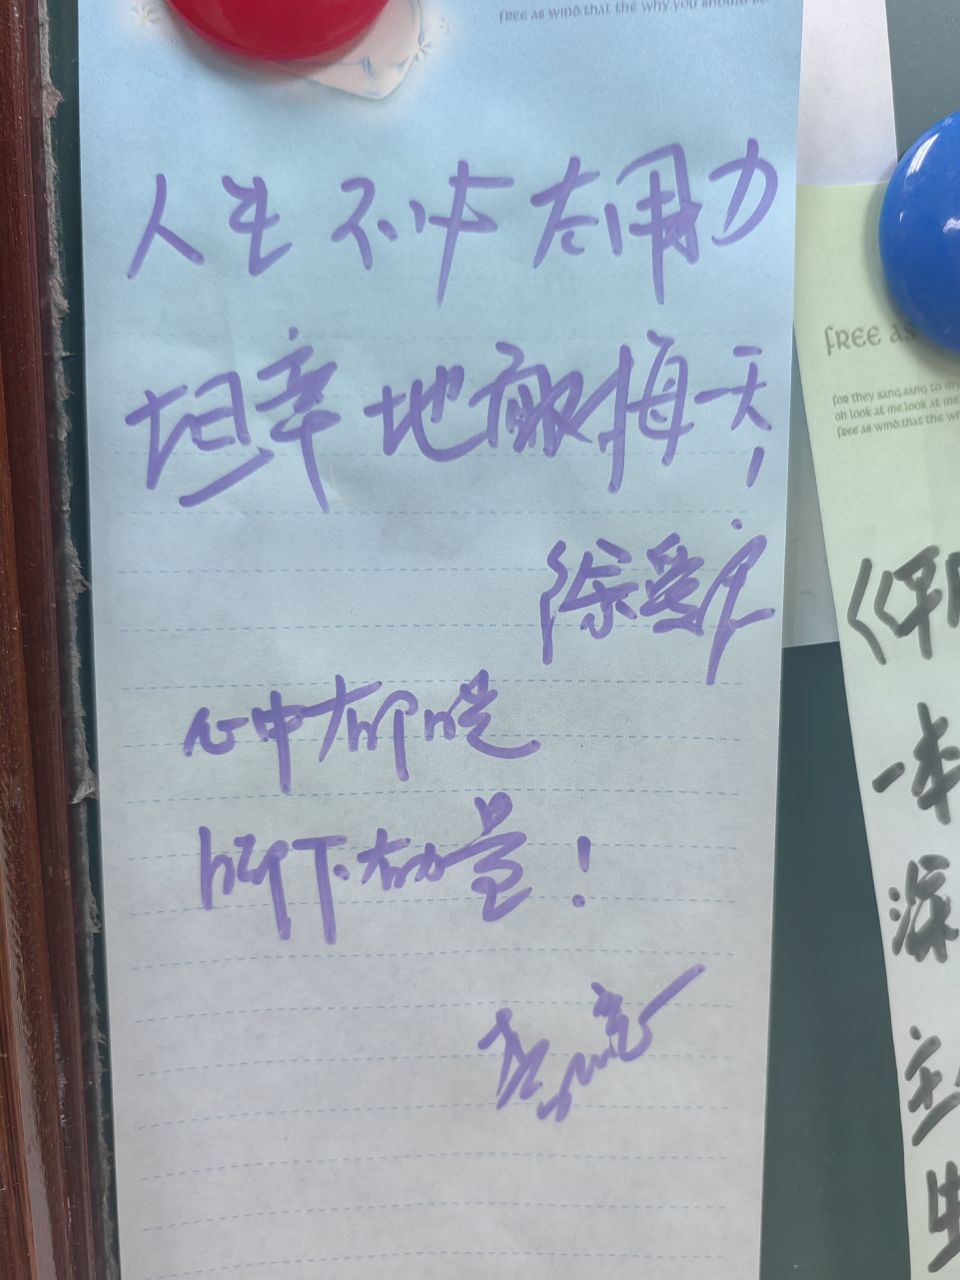 free as wind.that the why.you should be
人生不必太用力
坦率地敬每一天！
心中有阶梯
脚下有力量！
free as
for they sang,sang to my
oh look at me.look at me
free as wind.that the wh
一本
深
主
生